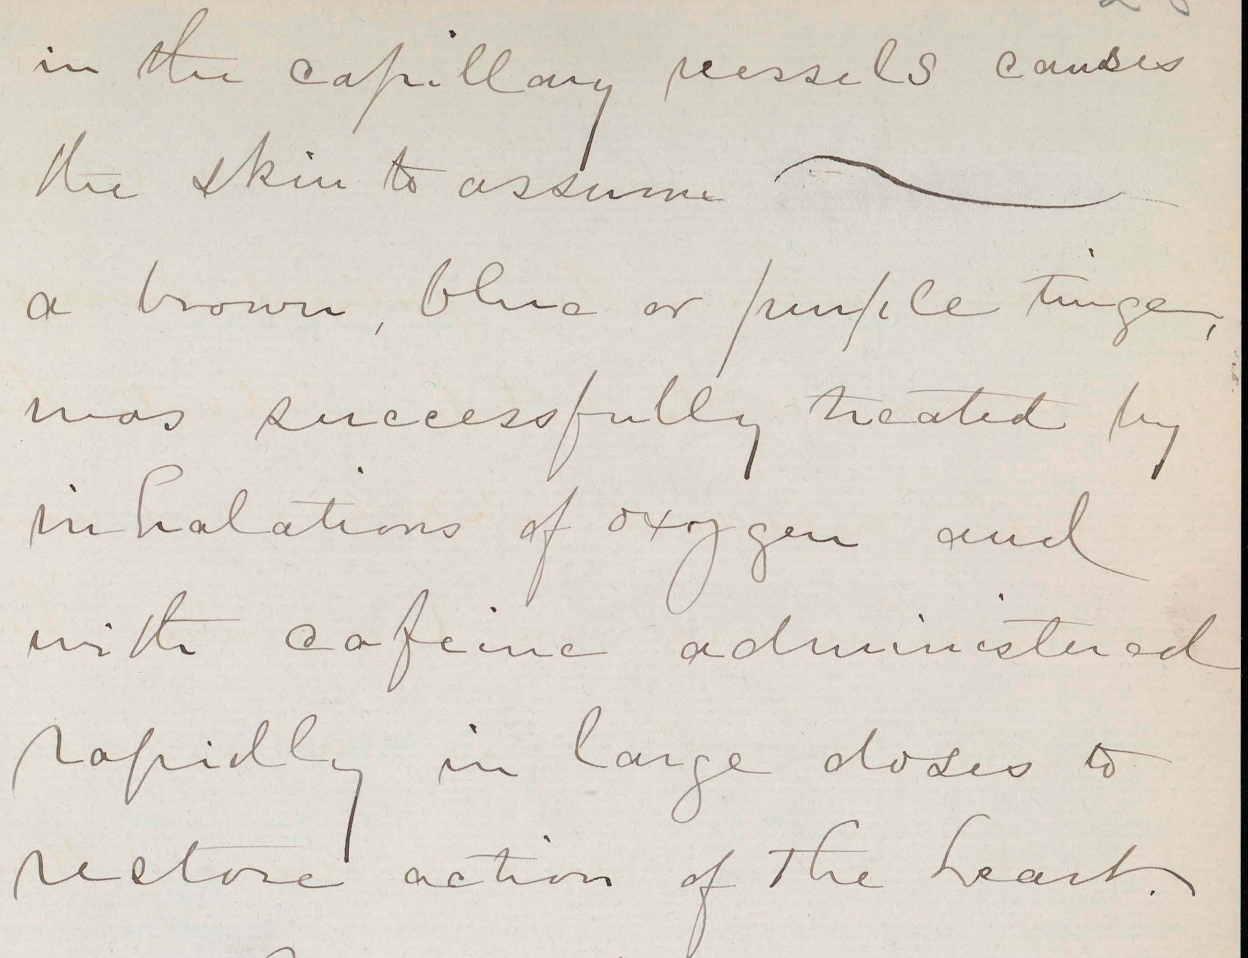 in the capillary vessels causes
the skin to assume
a brown, blue or purple tinge,
was successfully treated by
inhalations of oxygen and
with cafeine administered
rapidly in large doses to
restore action of the heart.